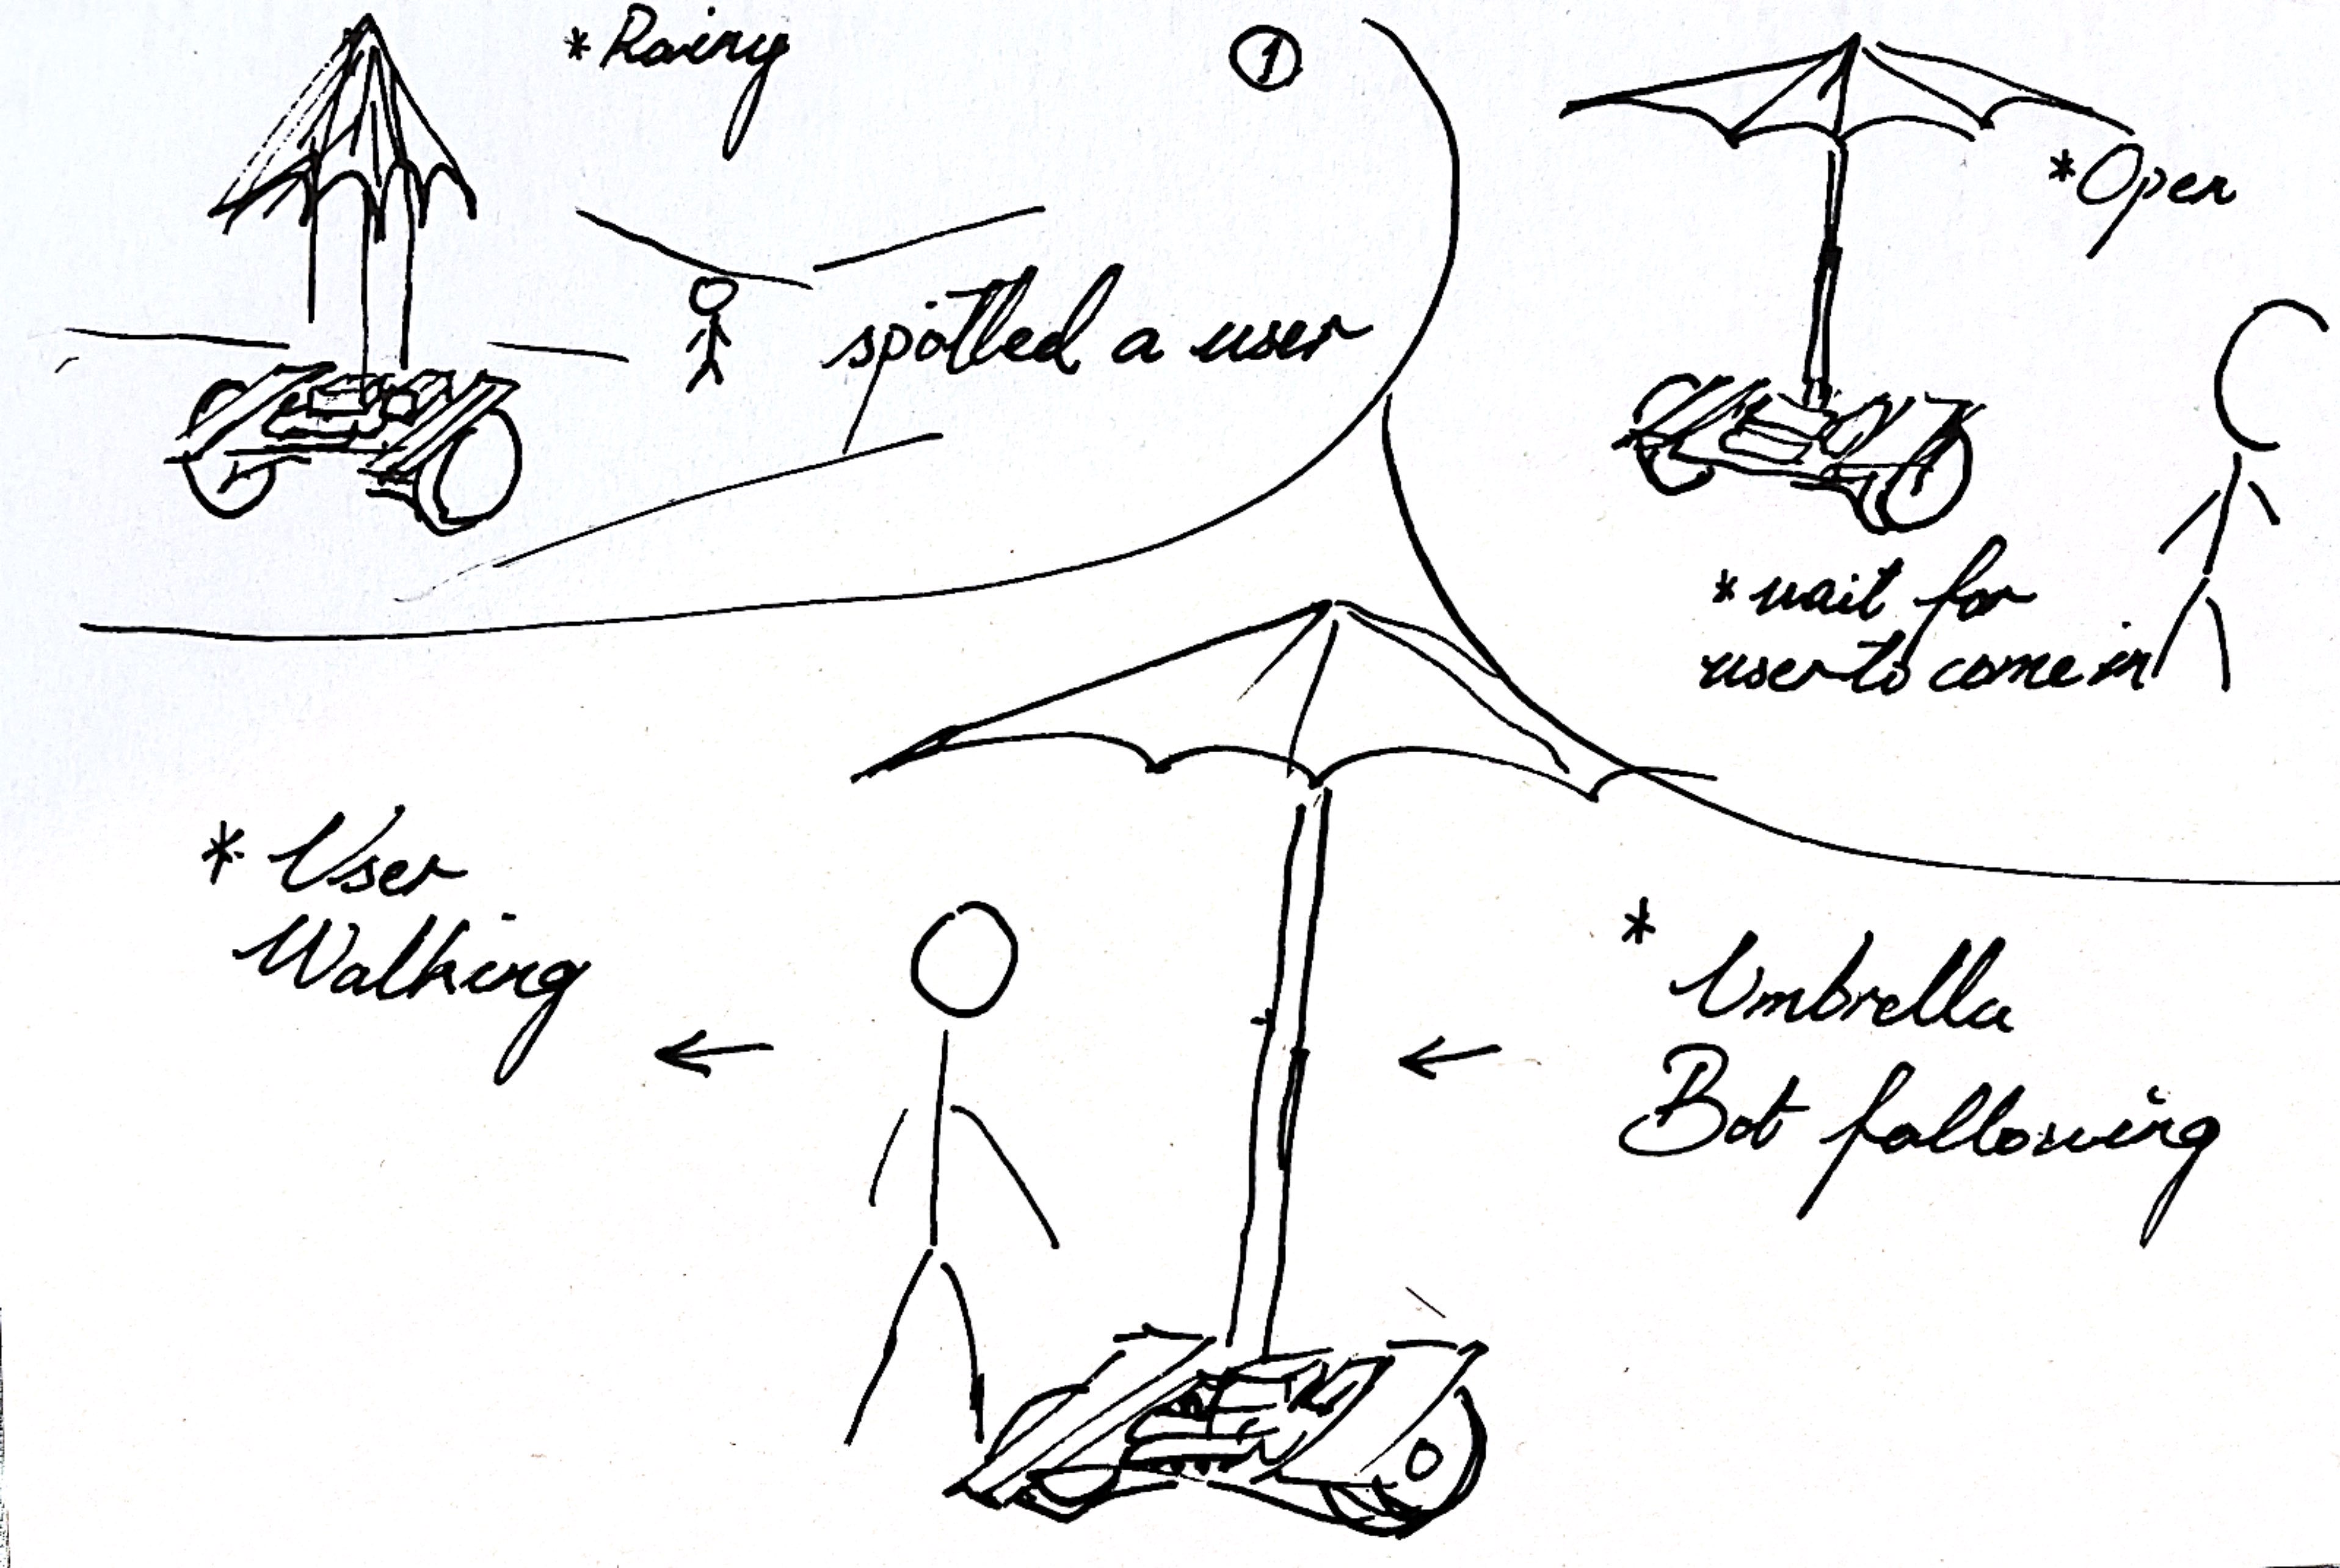 *Rainy
①
spotted a user
*Open
*wait for
user to come in
* User
Walking
*
Umbrella
Bot following